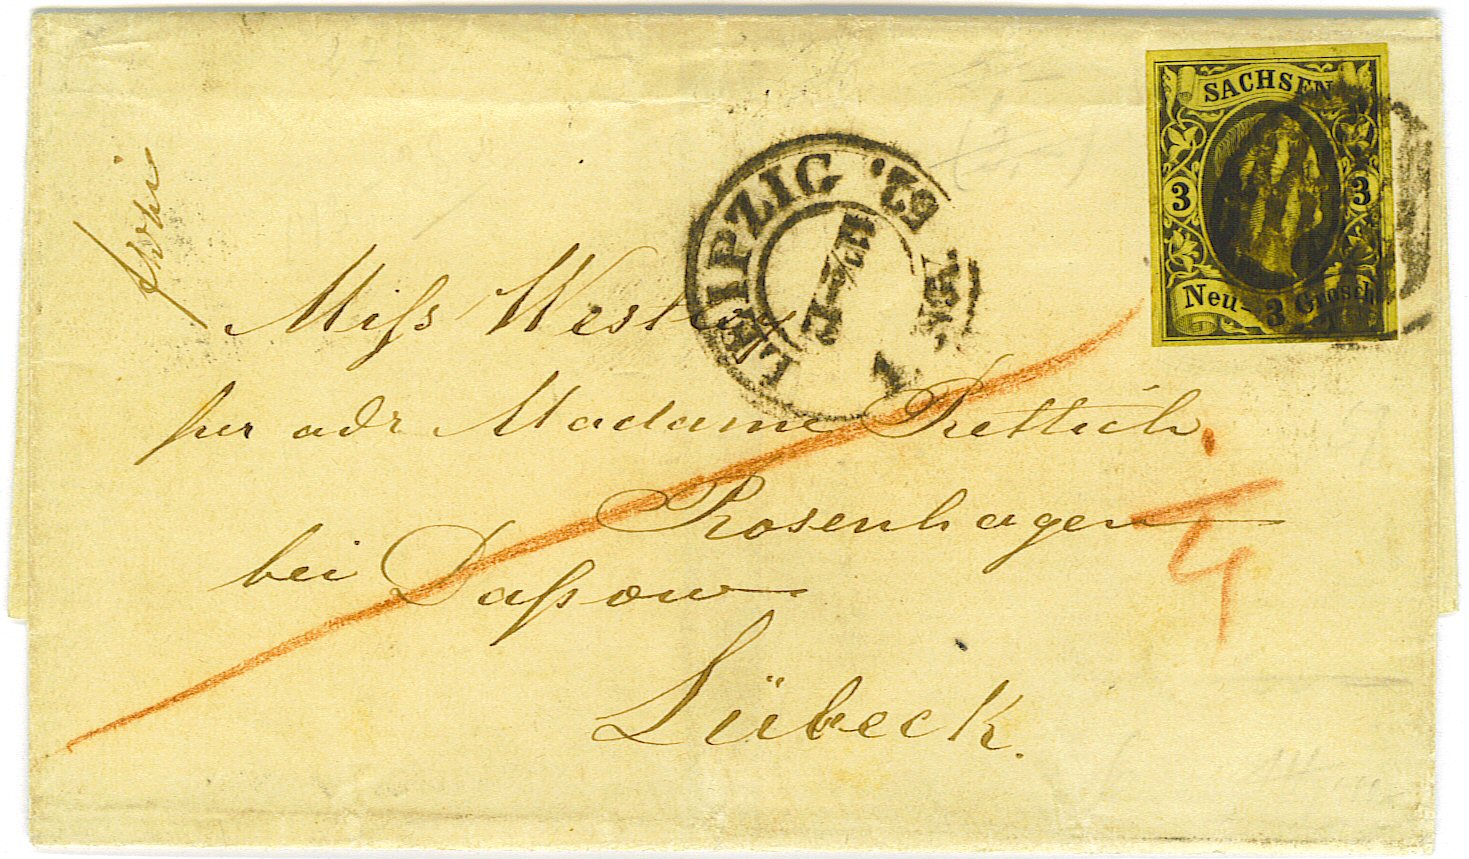 SACHSEN
3 3
Neu- 3 Grosch.
LEIPZIG
Miſs West
per adr Madame Rettich.
Rosenhagen
bei Daſsow
Lübeck.